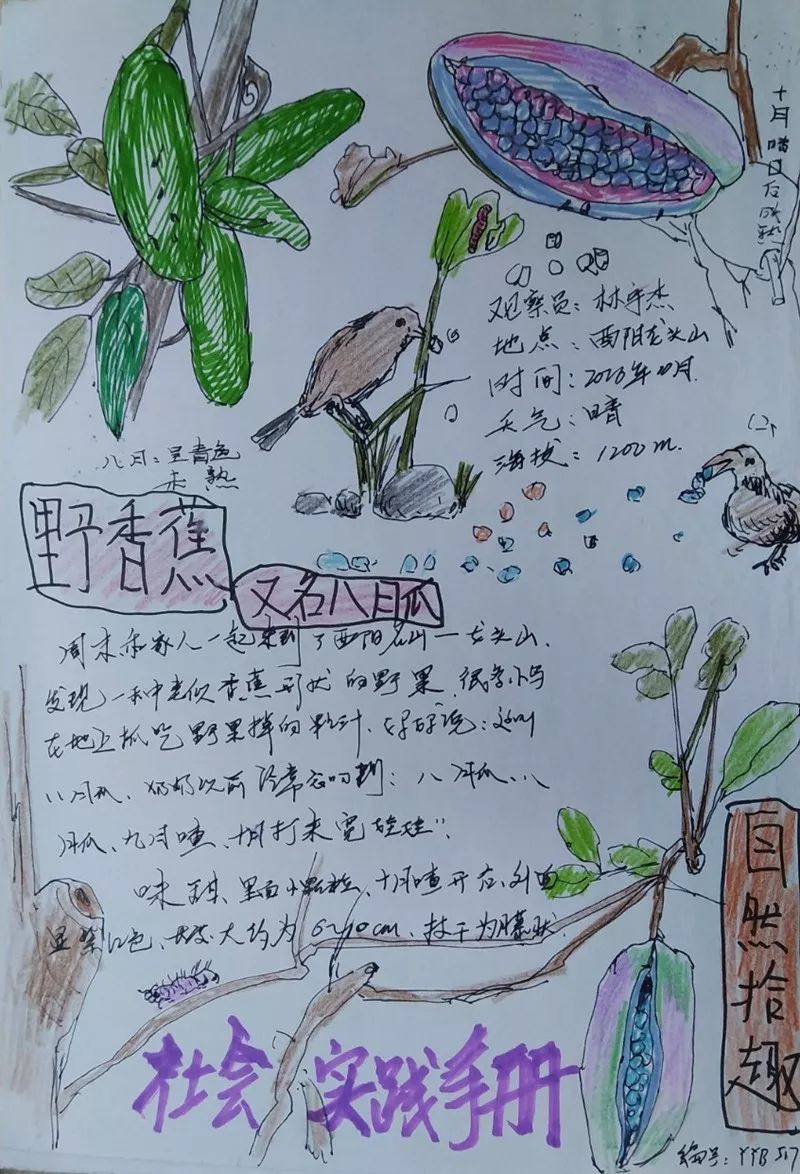 十月喳口后成熟
观察员：林宇杰
地点：酉阳龙头山
时间：2023年10月
天气：晴
海拔：1200m
八月：呈青色
未熟
野香蕉
又名八月瓜
周末和家人一起来到了酉阳名山一龙头山、
发现一种类似香蕉形状的野果，很多小鸟
在地上抓吃野果掉的籽汁、好好说：这叫
八月瓜、奶奶以前经常念叨到：八月瓜、八
月瓜、九月喳、打来宽娃娃"。
味、里面小颗粒、十月喳开后、外面
呈紫红色、大约为6~10cm、枝干为藤状.
自然拾趣
社会实践手册
编号：YYB